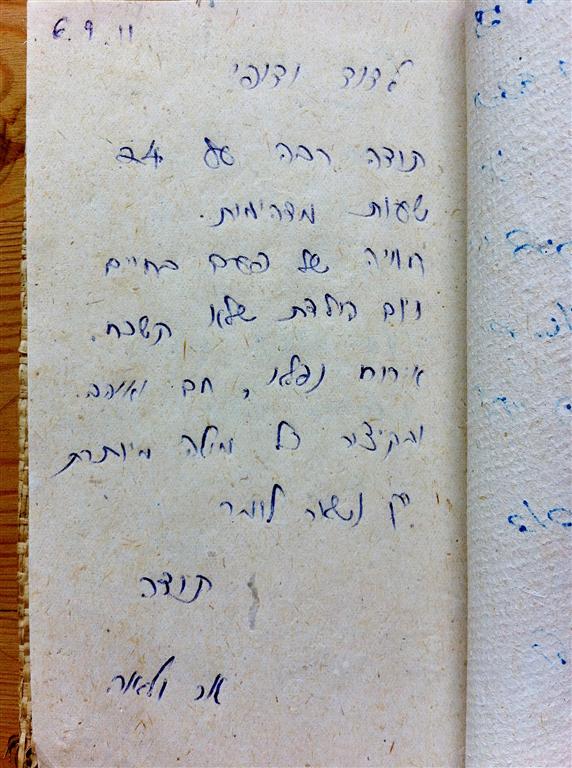 6.9.11
לדוד ודופי
תודה רבה על 24
שעות מדהימות.
חוויה של פעם בחיים
ויום הולדת שלא תשכח.
אירוח נפלא, חם ואוהב.
ובקיצור כל מילה מיותרת
רק נשאר לומר
תודה